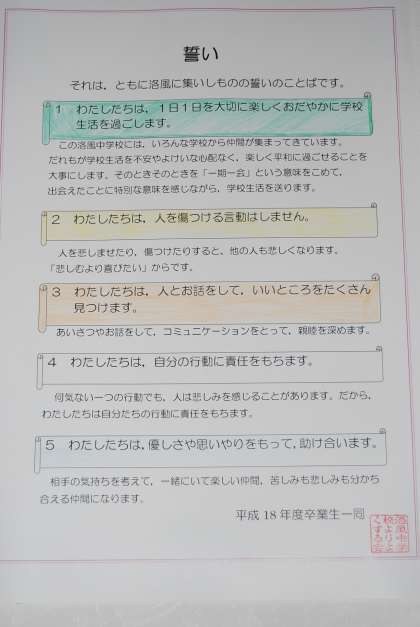 誓い
それは，ともに洛風に集いしものの誓いのことばです。
1 わたしたちは，１日１日を大切に楽しくおだやかに学校
生活を過ごします。
この洛風中学校には，いろんな学校から仲間が集まってきています。
だれもが学校生活を不安やよけいな心配なく，楽しく平和に過ごせることを
大事にします。そのときそのときを「一期一会」という意味をこめて，
出会えたことに特別な意味を感じながら，学校生活を送ります。
2 わたしたちは，人を傷つける言動はしません。
人を悲しませたり，傷つけたりすると，他の人も悲しくなります。
「悲しむより喜びたい」からです。
3 わたしたちは，人とお話をして，いいところをたくさん
見つけます。
あいさつやお話をして，コミュニケーションをとって，親睦を深めます。
4 わたしたちは，自分の行動に責任をもちます。
何気ない一つの行動でも，人は悲しみを感じることがあります。だから，
わたしたちは自分たちの行動に責任をもちます。
5 わたしたちは，優しさや思いやりをもって，助け合います。
相手の気持ちを考えて，一緒にいて楽しい仲間，苦しみも悲しみも分かち
合える仲間になります。
平成 18 年度卒業生一同